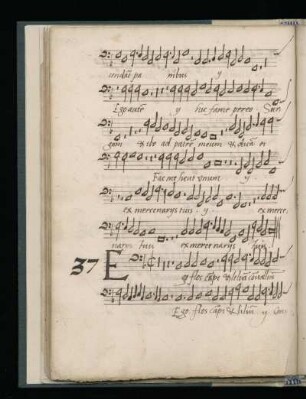 cundāt pa nibus y
Ego autē y hic fame pereo Sur
gam & ibo ad patrē meum & dicā ei
Fac me sicut vnum y
ex mercenarys tuis y ex merce
narys tuis ex mercenarys tuis
37 E
go flos cāpi & liliū cōvalliū
Ego flos cāpi & liliū y